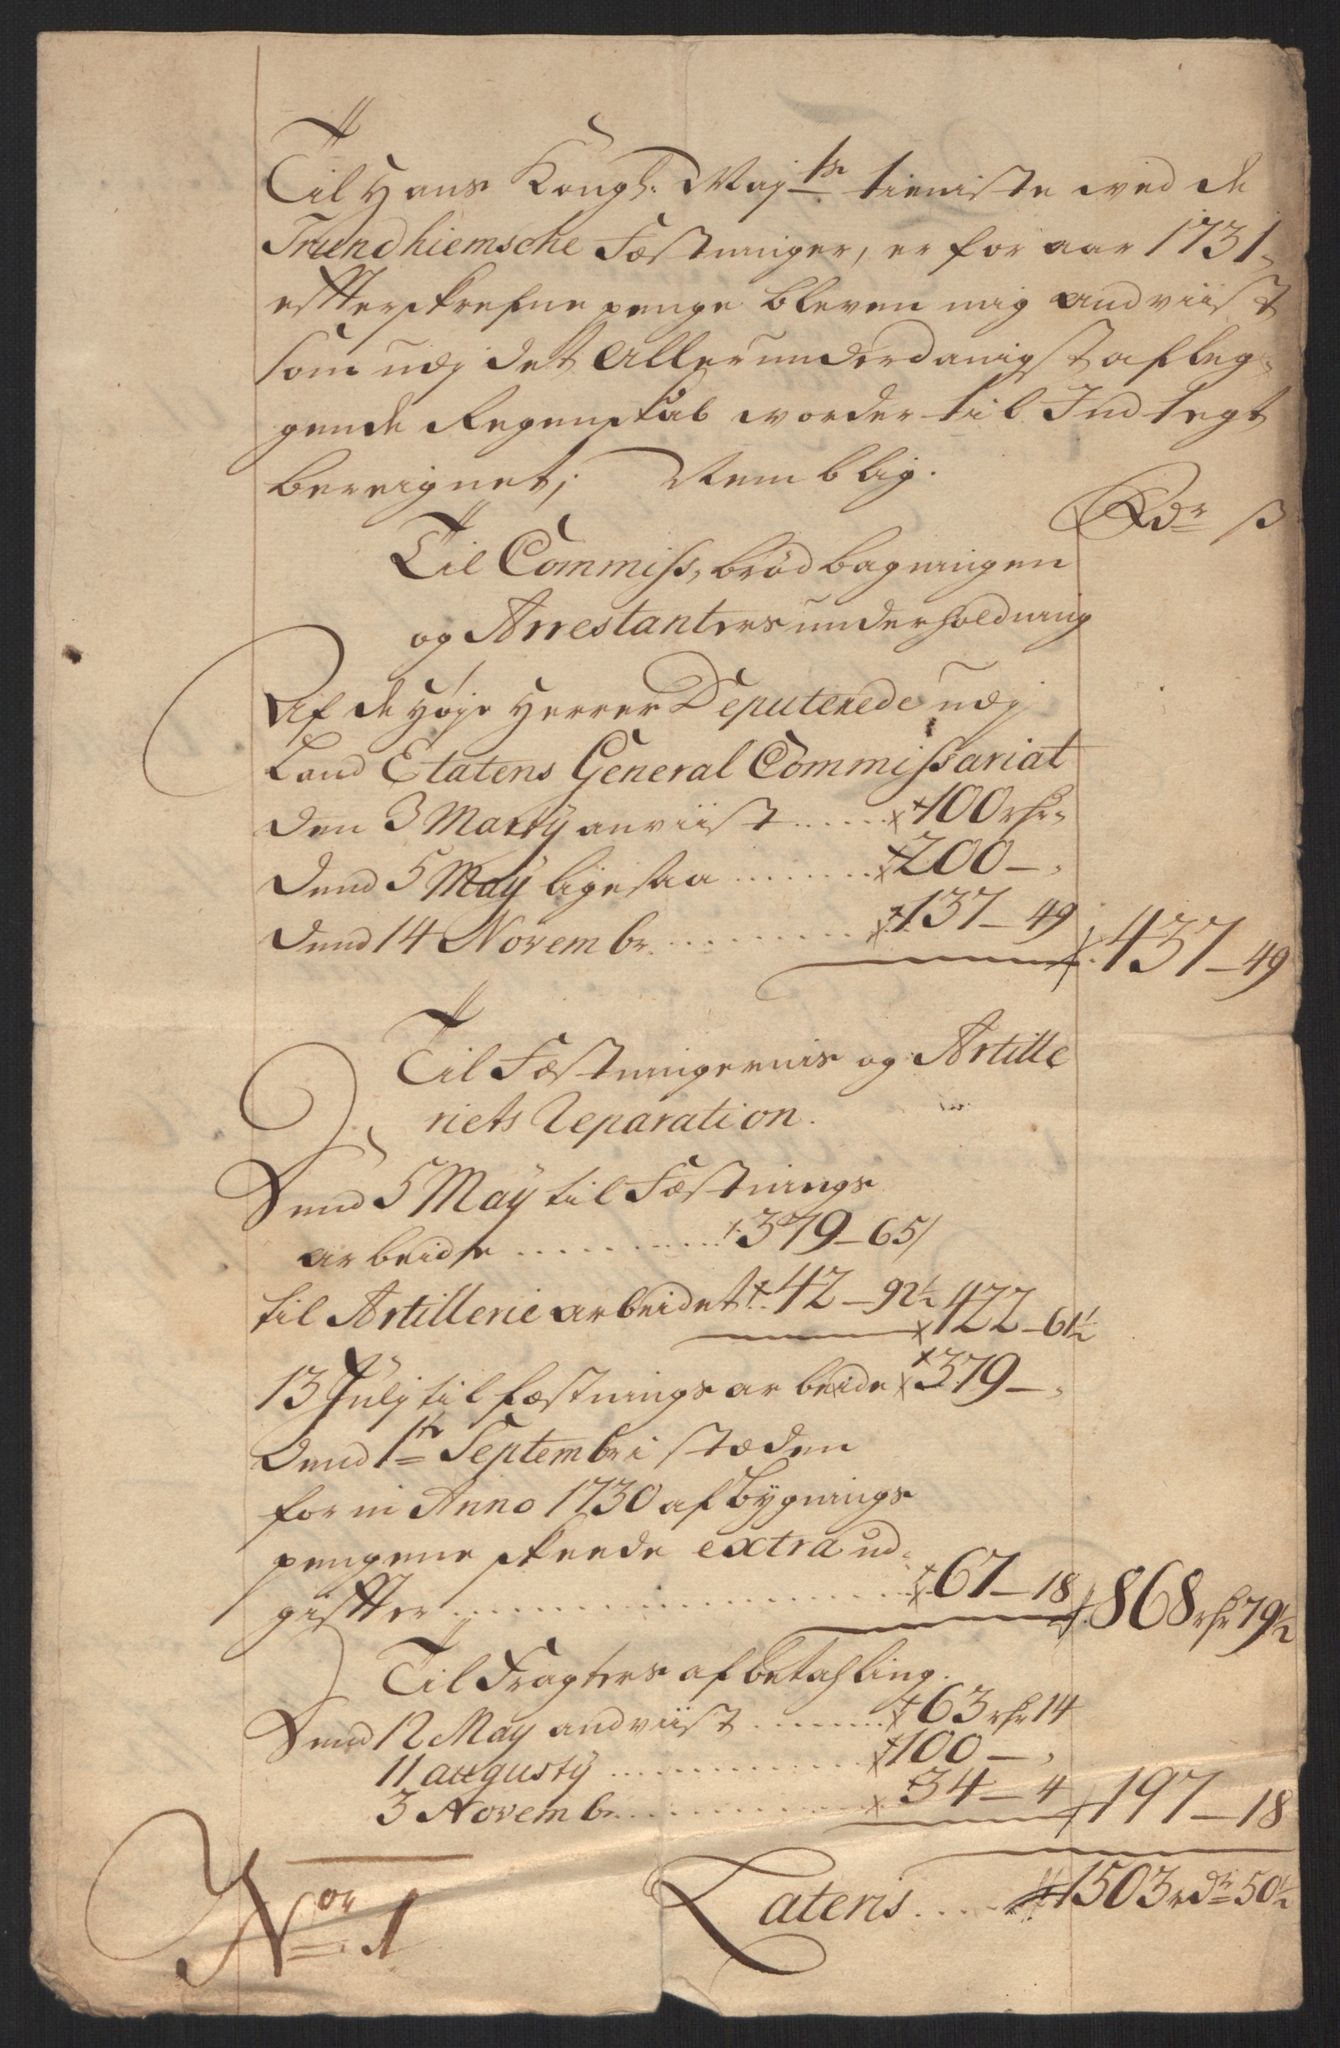 Til Hans Kongl: Maj:ts tieniste ved de
Trundhiemsche Fæstninger, er for aar 1731,
effterskrefne penge bleven mig andviist
som udj det Allerunderdanigst afleg-
gende Regenskab vorder til Indtegt
bereignet; Nemblig.
Rdr ß
Til Commiss, brød bagningen
og Arrestanters underholdning
Af de Høje Herrer Deputerede udj
Land Etatens General Commissariat
den 3 Marty anviist ...... 100 rdr
dend 5 May ligesaa ........ 200 —
dend 14 Novembr. .......... 137 — 49 437 — 49
Til Fæstningernis og Artille
riets Reparation.
Dend 5 May til Fæstnings
arbeide ............ 379 — 65
til Artillerie arbeidet 42 — 92½ 422 — 61½
13 Julj til fæstnings arbeide 379 —
Dend 1te Septembri stæden
for in Anno 1730 af bygnings
pengene skeede extra ud-
giffter .................... 67 — 18 868 rdr 79½
Til Fragters afbetahling.
Dend 12 May andviist ........ 63 rdr 14
11 augusty ............... 100 —
3 Novembr. ............... 34 — 4 197 — 18
Lateris ..... 1503 rdr 50½
No 1